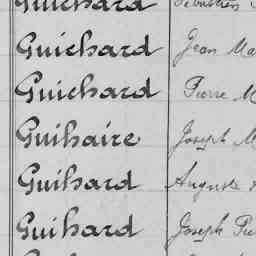 Guichard Sébastien
Guichard Jean Ma
Guichard Pierre M
Guihaire Joseph M
Guihard Auguste
Guihard Joseph Pie